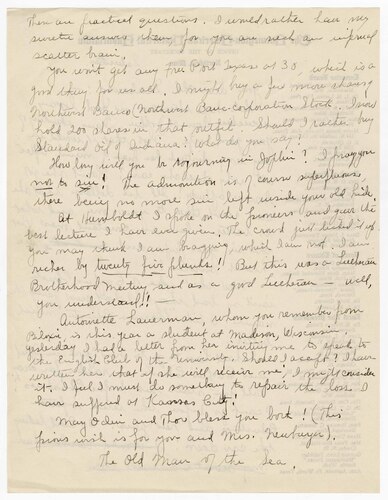 These are practical questions. I would rather have my
surete answer them, for you are such an infernal
scatter brain.
You won't get any Free Port Texas at 30, which is a
good thing for us all. I might buy a few more shares
Northwest Banco (Northwest Banc-corporation Stock. I now
hold 200 shares in that outfit. Should I rather buy
Standard Oil of Indiana? What do you say?
How long will you be sojourning in Joplin? I pray you
not to sin! The admonition is of course superfluous,
there being no more sin left inside your old hide.
At Humboldt I spoke on the Pioneers and gave the
best lecture I have ever given. The crowd just
you may think I am bragging, which I am not. I am
richer by twenty five plunks!! But this was a Lutheran
Brotherhood Meeting and as a good Lutheran — well,
you understand!! —
Antoinette Lauerman, whom you remember from
Biloxi is this year a student at Madison, Wisconsin.
Yesterday I had a letter from her inviting me to speak to
the English Club of the University. Should I accept? I have
written her that if she will receive me I might consider
it. I feel I must do something to repair the loss I
have suffered at Kansas City!
May Odin and Thor bless you both! (This
pious wish is for you and Mrs. Newburger).
The Old Man of the Sea.